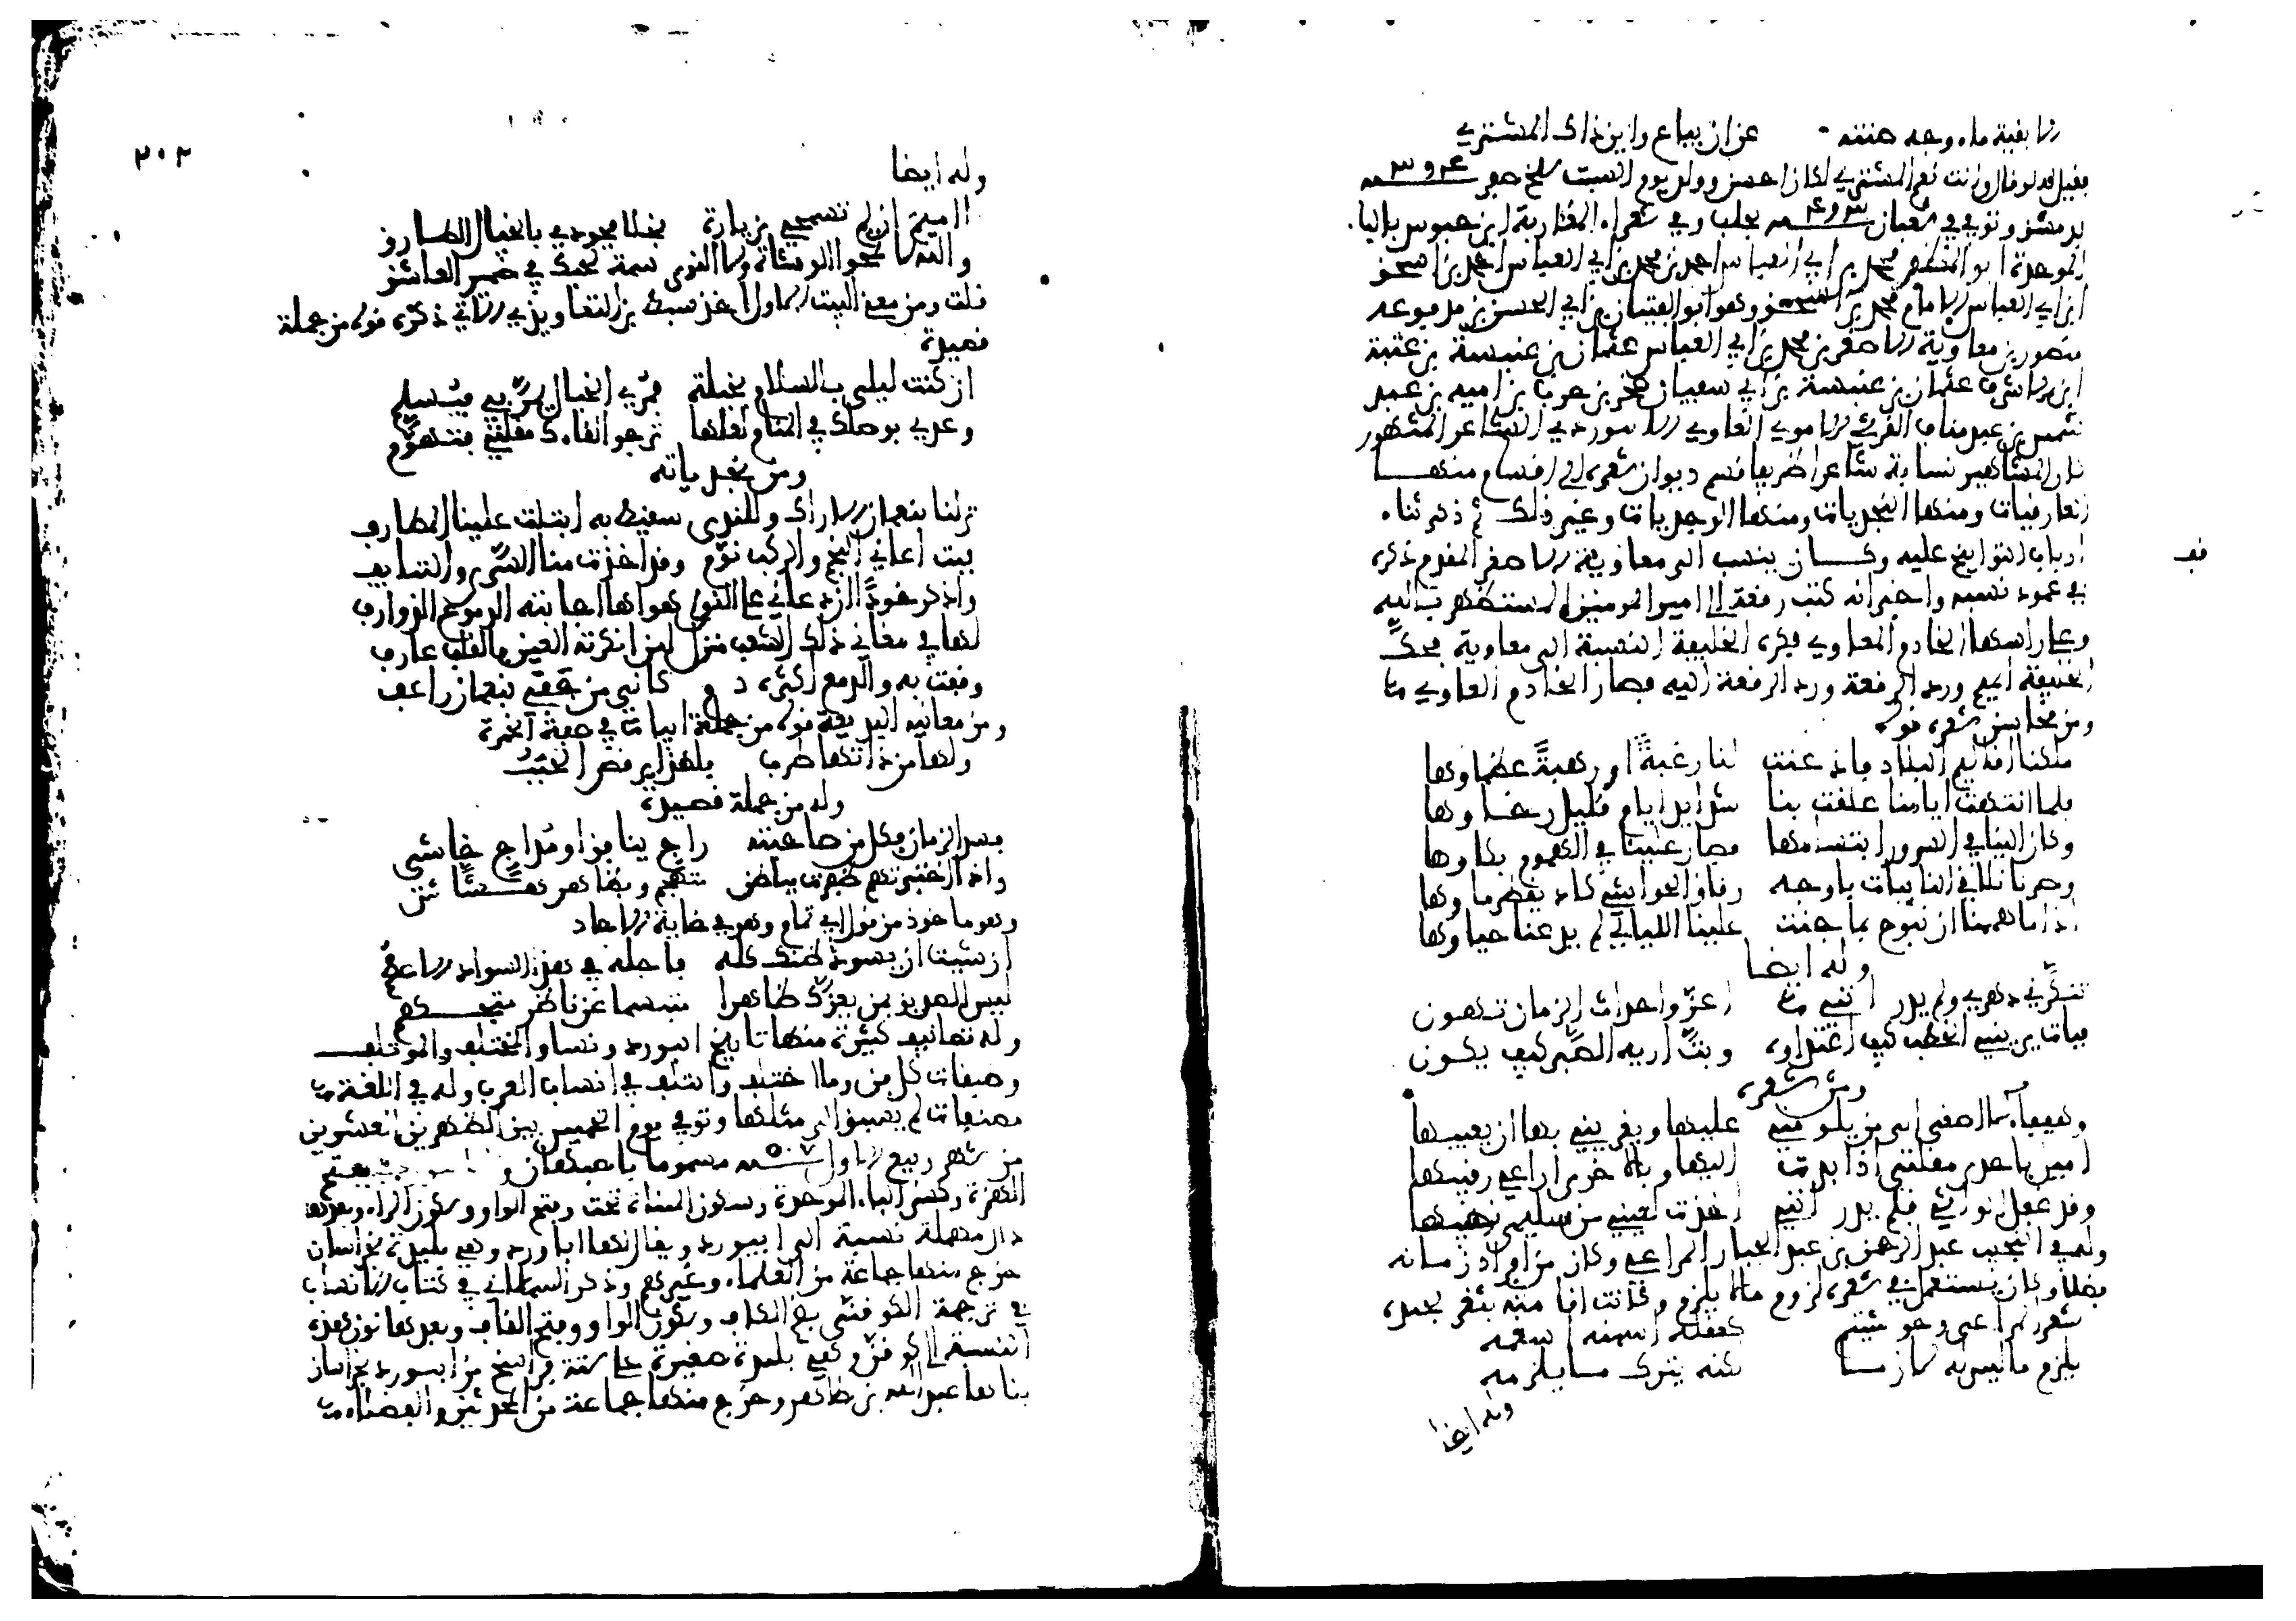 الا بقية ماء وجه صنته عن ان يباع واين ذاك المشتري
فقيل له لو قال وانت نعم المشتري لكان احسن وولد يوم السبت سلخ صفر
بدمشق وتوفي في شعبان بحلب وفي شعراء المغاربة ابن حبوس بالباء
الموحدة ابو المظفر محمد بن ابي العباس احمد بن محمد بن ابي العباس احمد بن اسحق
ابن ابي العباس الامام محمد بن اسحق وهو ابو الفتيان بن ابي الحسن بن مرفوعه
منصور بن معاوية الاصغر بن محمد بن ابي العباس عثمان بن عنبسة بن عتبة
ابن الاشرف عثمان بن عنبسة بن ابي سفيان صخر بن حرب بن اميه بن عبد
شمس بن عبد مناف القرشي الاموي المعاوي الابيوردي الشاعر المشهور
كان المشاهير نسابة شاعرا ظريفا قسم ديوان شعره الى اقسام منها
العراقيات ومنها النجديات ومنها الوجديات وغير ذلك ثم ذكر ثناء
ارباب التواريخ عليه وكان ينسب الى معاوية الاصغر المقدم ذكره
في عمود نسبه واخبر انه كتب رقعة الى امير المومنين المستظهر بالله
وعلى راسها الخادم المعاوي فكره الخليفة النسبة الى معاوية فحك
الخليفة الميم ورد الرقعة اليه فصار الخادم العاوي
ومن محاسن شعره قوله
ملكنا اقاليم البلاد فاذعنت لنا رغبة او رهبة عظماوها
فلما انتهت ايامنا علقت بنا شدايد ايام قليل رخاوها
وكان الينا في السرور ابتسامها فصار علينا في الهموم بكاوها
وصرنا نلاقي النايبات باوجه رقاق الحواشي كاد يقطر ماوها
اذا ما هممنا ان نبوح بما جنت علينا الليالي لم يدعنا حياوها
وله ايضا
تنكر لي دهري ولم يدر انني اعز واحداث الزمان تهون
فبات يريني الخطب كيف اعتداوه وبت اريه الصبر كيف يكون
ومن شعره
وهيفاء لا اصغي الى من يلومني عليها ويغريني بها ان يعيبها
اميل باحدى مقلتي اذا بدت اليها وبالاخرى اراعي رقيبها
وقد غفل الواشي فلم يدر انني اخذت لعيني من سليمى نصيبها
وله في النجيب عبد الرحمن بن عبد الجبار المراغي وكان من افراد زمانه
فضلا وكان يستعمل في شعره لزوم ما لا يلزم
شعر المراغي وحوشيتم كعقله اسلمه اسقمه
يلزم ما ليس له لازما لكنه يترك ما يلزمه
وله ايضا
٢٠٢
وله ايضا
ااميم ان لم تسمحي بزيارة بخلا فجودي بالخيال الطارق
والله لا تمحو الوشاة ولا النوى سمة لحبك في ضمير العاشق
قلت ومن معنى البيت الاول اخذ سبط بن التعاويذي الاتي ذكره قوله من جملة
قصيدة
ان كنت ليلى بالسلام بخيلة فمري الخيال يمر بي فيسلم
وعدي بوصلك في المنام لعلها ترجو لقاءك مقلتي فتهوم
ومن نجدياته
نزلنا بنعمان الاراك وللندى سقيط به ابتلت علينا المطارف
فبت اعاني الوجد والركب نوم وقد اخذت منا السرى والتنايف
واذكر خودا ان دعاني على النوى هواها اجابته الدموع الذوارف
لها في مغاني ذلك الشعب منزل لين انكرته العين فالقلب عارف
وقفت به والدمع اكثره دم كاني من جفني بنعمان راعف
ومن معانيه البديعة قوله من جملة ابيات في صفة الخمرة
ولها من ذاتها طرب فلهذا يرقص الحبب
وله من جملة قصيدة
فسد الزمان فكل من صاحبته راج ينافق او مداج خاشي
واذا اختبرتهم ظفرت بباطن متجهم وبظاهر هشاش
وهو ماخوذ من قول ابي تمام وهو في غاية الاجادة
ان شيت ان يسود ظنك كله فاجله في هذا السواد الاعظم
ليس الصديق بمن يعيرك ظاهرا متبسما عن باطن متجهم
وله تصانيف كثيرة منها تاريخ ابيورد ونسا والمختلف والموتلف
وطبقات كل فن وما اختلف وائتلف في انساب العرب وله في اللغة
مصنفات لم يسبق الى مثلها وتوفي يوم الخميس بين الظهرين العشرين
من شهر ربيع الاول مسموما باصبهان بفتح
الهمزة وكسر الباء الموحدة وسكون المثناة تحت وفتح الواو وسكون الراء وبعدها
دال مهملة نسبة الى ابيورد ويقال لها اباورد وهي بليدة بخراسان
خرج منها جماعة من العلماء وغيرهم وذكر السمعاني في كتاب الانساب
في ترجمة الكوفني بضم الكاف وسكون الواو وفتح الفاف وبعدها نون هذه
النسبة الى كوفن وهي بليدة صغيرة على ستة فراسخ من ابيورد بخراسان
بناها عبد الله بن طاهر وخرج منها جماعة من المحدثين والفضلاء